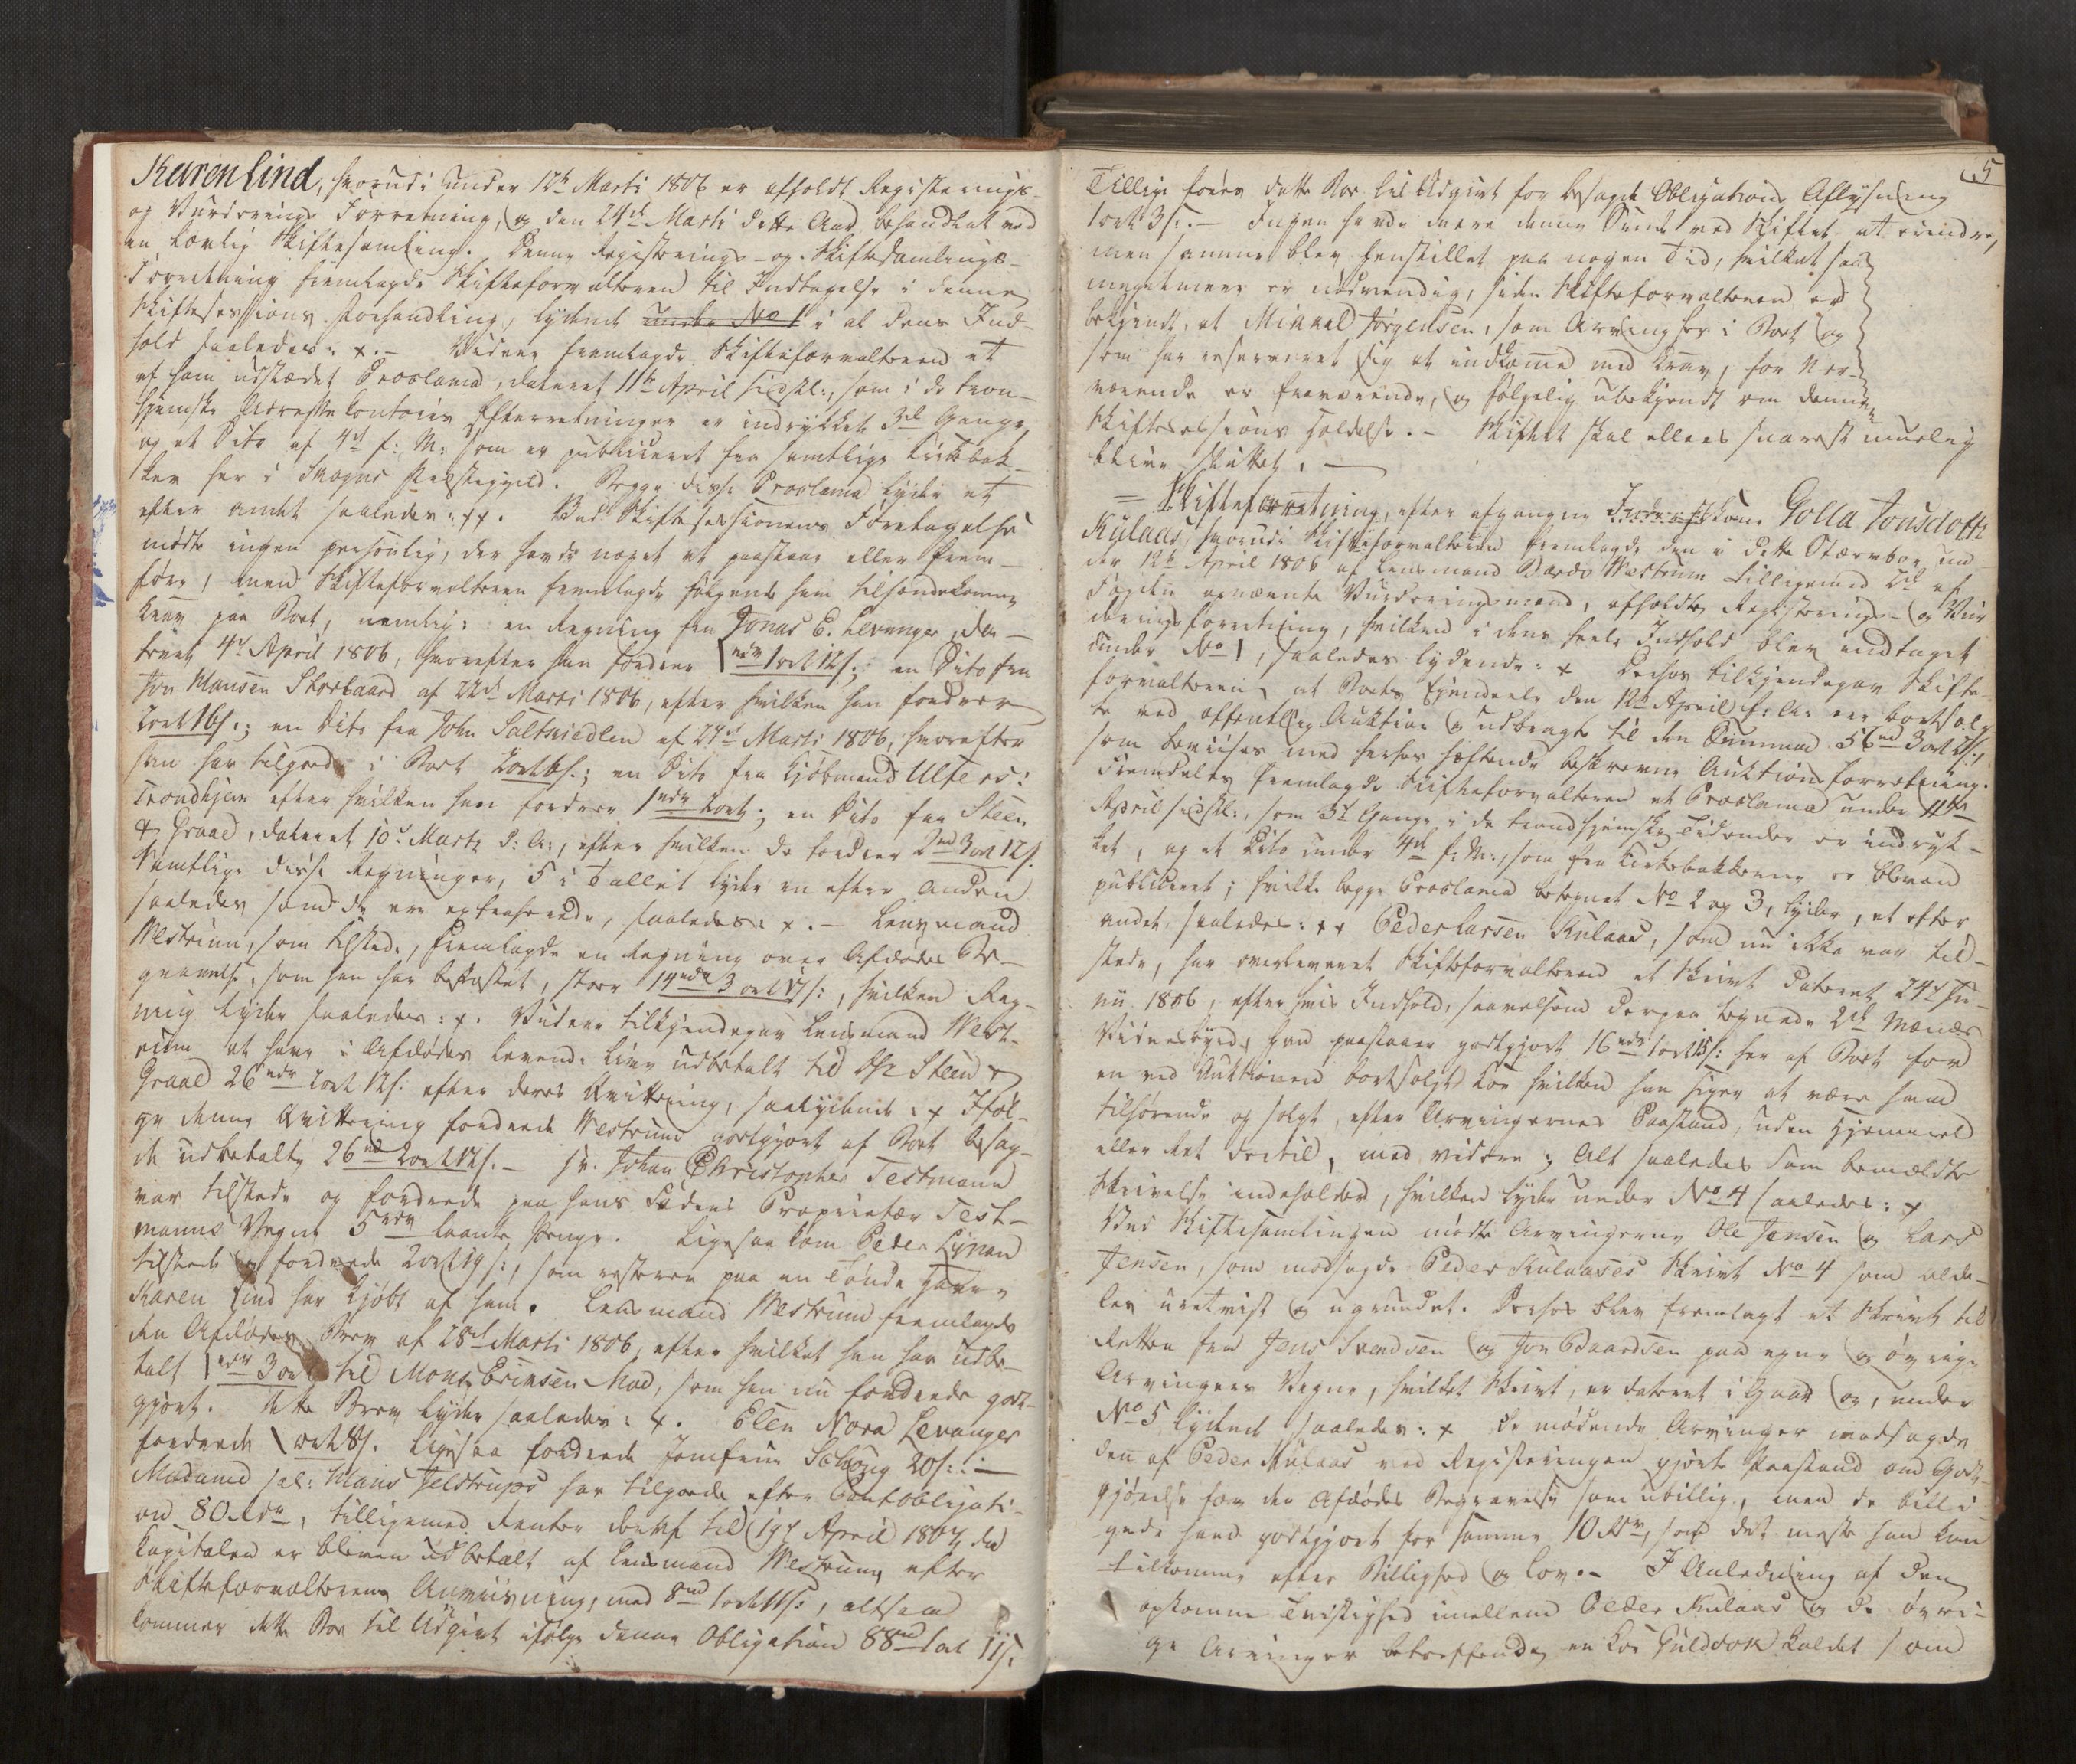 Karen Lind, hvorudi under 12te Marti 1806 er afholdt Registerings-
og Vurderings Forretning, og den 24de Marti dette Aar behandlet ved
en lovlig Skiftesamling. Denne Registerings- og Skiftesamlings-
Forretning fremlagde Skifteforvalteren til Indtagelse i denne
Skiftesessions Forhandling, lydende under No 1 i al dens Ind-
hold saaledes: x. - Videre fremlagde Skifteforvalteren et
af ham udstædet Proclama, dateret 11te April sidstl:, som i de tron-
hjemske Adresse Contoirs Efterretninger er indrykket 3de Gange,
og et Dito af 4de f: M: som er publiceret fra samtlige Kirkebak-
ker her i Skogns Præstegield. Begge disse Proclama lyde et
efter andet saaledes: xx. Ved Skiftesessionens Foretagelse
mødte ingen personlig, der havde noget at paastaae eller frem-
føre, men Skifteforvalteren fremlagde følgende ham tilhændekomne
Krav paa Boet, nemlig: en Regning fra Jonas E. Levanger, da-
teret 4de April 1806, hvorefter han fordrer 1rdr 1ort 12s.; en Dito fra
Jon Hansen Storbaard af 22de Marti 1806, efter hvilken han fordrer
2ort 16s.; en Dito fra John Salthiedlen af 24de Marti 1806, hvorefter
han har tilgode i Boet 2ort 6s.; en Dito fra Kjøbmand Ulfers i
Trondhjem efter hvilken han fordrer 1rdr 2ort; en Dito fra Steen
& Graae, dateret 10de Marti d: A:, efter hvilken de fordrer 2rd 3ort 12s.
Samtlige disse Regninger, 5 i Tallet lyde en efter anden
saaledes som de ere extraherede, saaledes: x. - Lensmand
Westrum, som tilstede, fremlagde en Regning over Afdødes Be-
gravelse, som han har bekostet, stoer 14rdr 3ort 17s:, hvilken Reg-
ning lyder saaledes: x. Videre tilkjendegav Lensmand West-
rum at have i Afdødes levende Live udbetalt til Hr Steen &
Graae 26rdr 2ort 12s: efter deres Qvittering, saalydende: x Iføl-
ge denne Qvittering fordrede Westrum godtgjort af Boet besag-
de udbetalte 26rd 2ort 12s. - Hr. Johan Christopher Testmann
var tilstede og fordrede paa hans Faders Proprietær Test-
manns Vegne 5rdr laante Penge. Ligesaa kom Peder Lynan
tilstede og fordrede 2ort 19s:, som resterer paa en Tønde Havre
Karen Lind har kjøbt af ham. Lensmand Westrum fremlagde
den Afdødes Brev af 28de Marti 1806, efter hvilket han har udbe-
talt 1rdr 3ort til Mons Erinsen Moe, som han nu fordrede godt-
gjort. Dette Brev lyder saaledes: x. Elen Nora Levanger
fordrede 1ort 8s. Ligesaa fordrede Jomfrue 20s: -
Madame sal: Hans Jelstrups har tilgode efter Pantobligati-
on 80 Rdr, tilligemed Renter deraf til 19de April 1807, da
Kapitalen er bleven udbetalt af Lensmand Westrum efter
Skifteforvalterens Anviisning, med 8rd 1ort 11s:, altsaa
kommer dette Boe til Udgivt ifølge denne Obligation 88rd 1ort 11s.
5
Tillige føres dette Boe til Udgivt for besagde Obligations Aflysning
1ort 3s. - Ingen havde mere denne Sinde ved Skiftet at erindre,
men samme blev henstillet paa nogen Tid, hvilket saa
megetmeere er nødvendig, siden Skifteforvalteren er
bekjendt, at Mikkel Jørgensen, som Arving her i Boet og
som har reserveret sig at indkomme med Krav, for Nær-
værende er fraværende, og følgelig ubekjendt om denne
Skiftesessions Holdelse. - Skiftet skal ellers snarest muelig
blive sluttet. -
= Skifteforretning, efter afgangne Inderstkone Golla Jonsdotter
Kulaas, hvorudi Skifteforvalteren fremlagde den i dette Stærvboe un-
der 12te April 1806 af Lensmand Bærdo Westrum tilligemed 2de af
Fogden opnævnte Vurderingsmænd, afholdte Registerings- og Vur-
deringsforretning, hvilken i dens heele Indhold blev indtaget
under No 1, saaledes lydende: x Derhos tilkjendegav Skifte-
forvalteren, at Boets Ejendeele den 12te April f: A: ere bortsolg-
te ved offentlig Auktion og udbragt til den Summa 56rd 3ort 2s:,
som bevises med herhos hæftende beskrevne Auktionsforretning.
Fremdeles fremlagde Skifteforvalteren et Proclama under 11te
April sidstl:, som 3de Gange i de trondhjemske Tidender er indryk-
ket, og et Dito under 4de f: M:, som fra Kirkebakkerne er bleven
publiceret; hvilke begge Proclama betegnet No 2 og 3, lyder, et efter
andet saaledes: xx Peder Larsen Kulaas, som nu ikke var til-
stede, har overleveret Skifteforvalteren et Skrivt dateret 24de Ju-
nii 1806, efter hvis Indhold, saavelsom derpaa tegnede 2de Mænds
Vidnesbyrd, han paastaaer godtgjort 16rdr 1ort 15s: her af Boet for
en ved Auktionen bortsolgt Koe hvilken han siger at være ham
tilhørende og solgt, efter Arvingernes Paastand, uden Hjemmel
eller Ret dertil, med videre; Alt saaledes som bemældte
Skrivelse indeholder, hvilken lyder under No 4 saaledes: x
Ved Skiftesamlingen mødte Arvingerne Ole Jensen og Lars
Jensen, som modsagde Peder Kulaases Skrivt No 4 som alde-
les uretvist og ugrundet. Derhos blev fremlagt et Skrivt til
Retten fra Jens Svendsen og Jon Baardsen paa egne og øvrige
Arvingers Vegne, hvilket Skrivt, er dateret i Gaar og, under
No 5 lydende saaledes: x De mødende Arvinger modsagde
den af Peder Kulaas ved Registeringen gjorte Paastand om Godt-
gjørelse for den Afdødes Begravelse som ubillig, men de billi-
gede ham godtgjort for samme 10 Rdr, som det meste han kan
tilkomme efter Billighed og Lov. - I Anledning af den
opkomne Tvistighed imellem Peder Kulaas og de øvri-
ge Arvinger betreffende en Koe Guldrok kaldet som